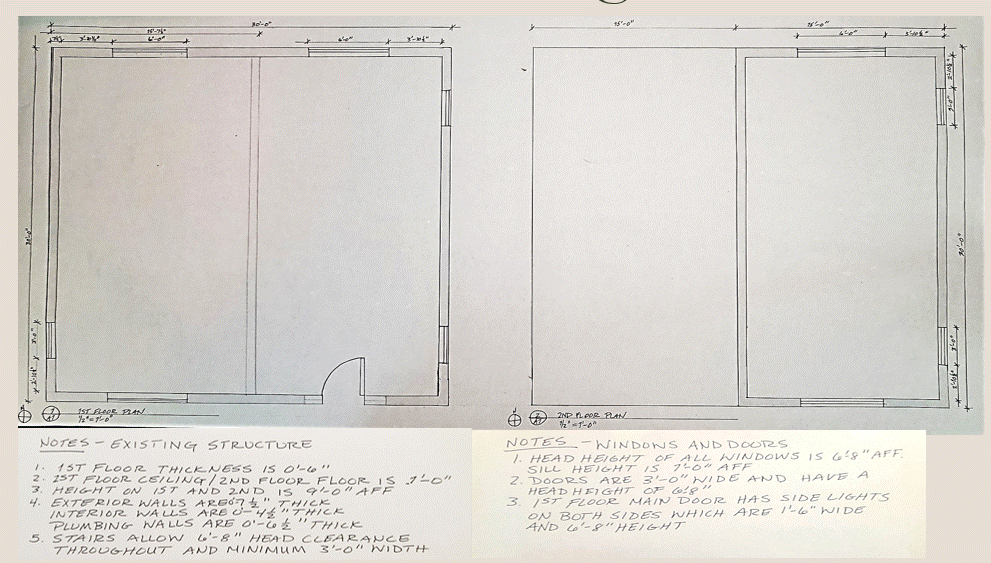 30'-0"
15'-7½"
6'-0"
6'-0"
15'-0"
15'-0"
6'-0"
3'-0"
30'-0"
3'-0"
30'-0"
3'-0"
1
A1
1ST FLOOR PLAN
½"=1'-0"
2
A1
2ND FLOOR PLAN
½"=1'-0"
NOTES - EXISTING STRUCTURE
1. 1ST FLOOR THICKNESS IS 0'-6"
2. 1ST FLOOR CEILING/2ND FLOOR FLOOR IS 1'-0"
3. HEIGHT ON 1ST AND 2ND IS 9'-0" AFF
4. EXTERIOR WALLS ARE 0'-7½" THICK
INTERIOR WALLS ARE 0'-4½" THICK
PLUMBING WALLS ARE 0'-6½" THICK
5. STAIRS ALLOW 6'-8" HEAD CLEARANCE
THROUGHOUT AND MINIMUM 3'-0" WIDTH
NOTES - WINDOWS AND DOORS
1. HEAD HEIGHT OF ALL WINDOWS IS 6'8" AFF.
SILL HEIGHT IS 1'-0" AFF
2. DOORS ARE 3'-0" WIDE AND HAVE A
HEAD HEIGHT OF 6'8"
3. 1ST FLOOR MAIN DOOR HAS SIDE LIGHTS
ON BOTH SIDES WHICH ARE 1'-6" WIDE
AND 6'-8" HEIGHT